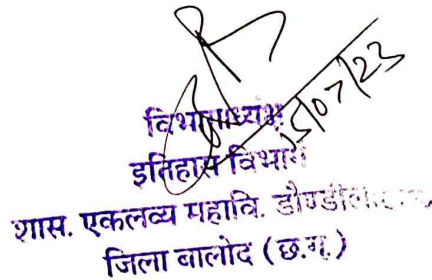 15/07/23
विभागाध्यक्ष
इतिहास विभाग
शास. एकलव्य महावि.
जिला बालोद (छ.ग.)